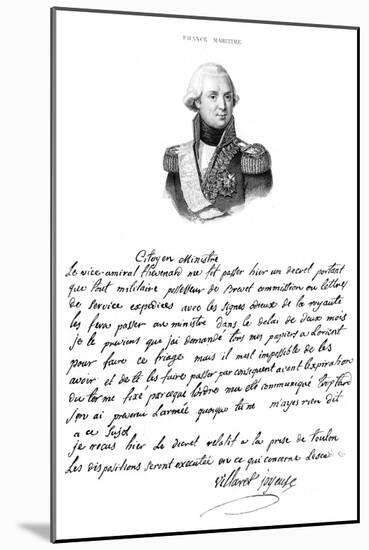 FRANCE MARITIME
Citoyen Ministre
Le vice-amiral thevenard me fit passer hier un decret portant
que tout militaire possesseur de Brevet commission ou lettres
de service expediées avec les signes odieux de la royauté
les fera passer au ministre dans le delai de deux mois
je le previens que j'ai demandé tous mes papiers a Lorient
pour faire ce triage mais il m'est impossible de les
avoir et de les faire passer par consequent avant l'expiration
du terme fixé parceque l'ordre m'a eté communiqué trop tard
j'en ai prevenu l'armée quoique tu ne m'ayes rien dit
a ce sujet
je reçus hier le decret relatif a la prise de toulon
Les dispositions seront executées en ce qui concerne l'escadre
villaret joyeuse